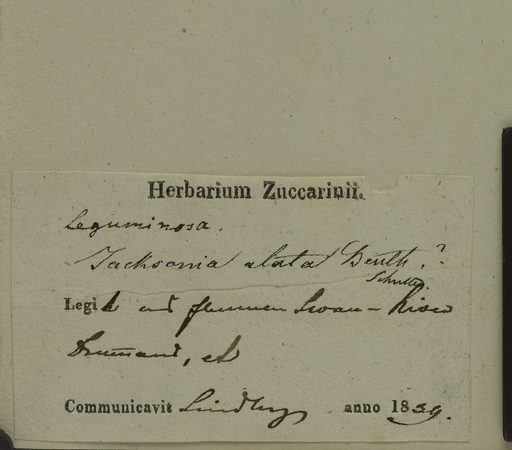 Herbarium Zuccarinii.
Leguminosa.
Jacksonia alata Benth. ?
Legit ad flumen Swan-River
Drumand, et
Communicavit Lindley anno 1839.